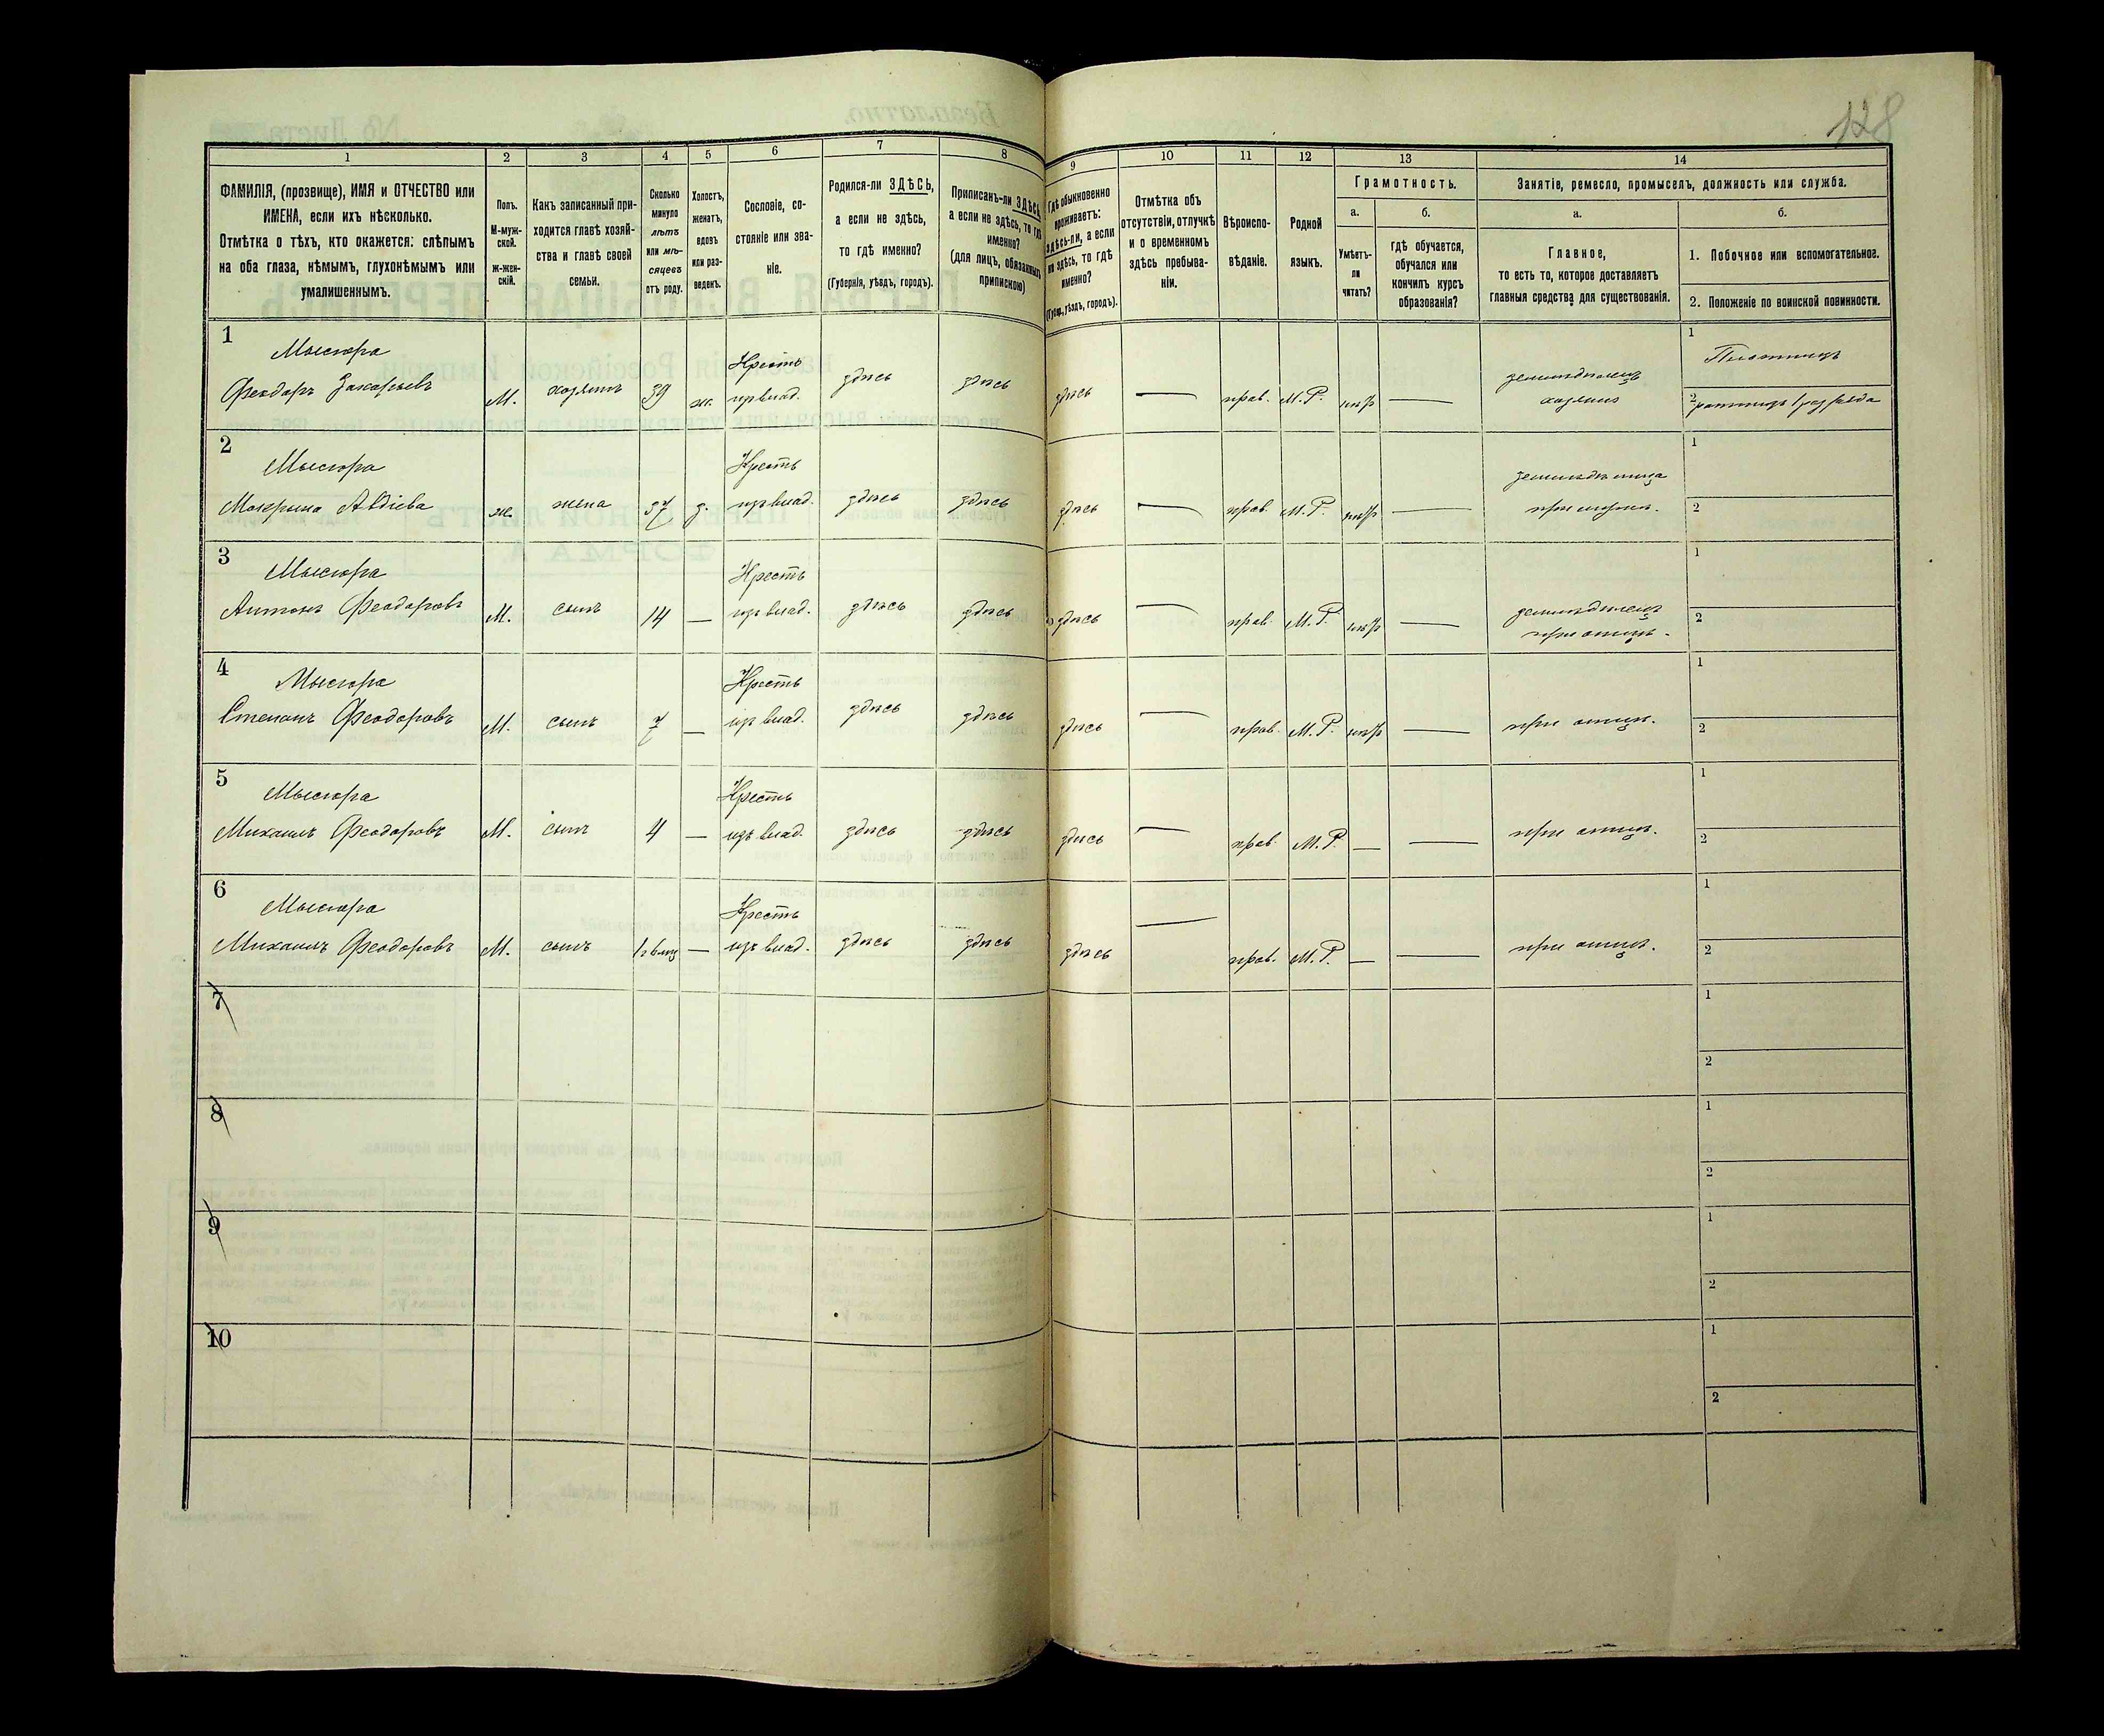 128
1 2 3 4 5 6 7 8 9 10 11 12 13 14
ФАМИЛІЯ, (прозвище), ИМЯ и ОТЧЕСТВО или
ИМЕНА, если ихъ нѣсколько.
Отмѣтка о тѣхъ, кто окажется: слѣпымъ
на оба глаза, нѣмымъ, глухонѣмымъ или
умалишеннымъ.
Полъ.
М-муж-
ской.
ж-жен-
скій.
Какъ записанный при-
ходится главѣ хозяй-
ства и главѣ своей
семьи.
Сколько
минуло
лѣтъ
или мѣ-
сяцевъ
отъ роду.
Холостъ,
женатъ,
вдовъ
или раз-
веденъ.
Сословіе, со-
стояніе или зва-
ніе.
Родился-ли ЗДѢСЬ,
а если не здѣсь,
то гдѣ именно?
(Губернія, уѣздъ, городъ).
Приписанъ-ли ЗДѢСЬ,
а если не здѣсь, то гдѣ
именно?
(для лицъ, обязанныхъ
припискою)
Гдѣ обыкновенно
проживаетъ:
здѣсь-ли, а если
не здѣсь, то гдѣ
именно?
(Губер., уѣздъ, городъ).
Отмѣтка объ
отсутствіи, отлучкѣ
и о временномъ
здѣсь пребыва-
ніи.
Вѣроиспо-
вѣданіе.
Родной
языкъ.
Грамотность.
а.
Умѣетъ-
ли
читать?
б.
гдѣ обучается,
обучался или
кончилъ курсъ
образованія?
Занятіе, ремесло, промыселъ, должность или служба.
а.
Главное,
то есть то, которое доставляетъ
главныя средства для существованія.
б.
1. Побочное или вспомогательное.
2. Положеніе по воинской повинности.
1
Мысюра
Феодоръ Захарьевъ М. хозяинъ 39 ж. Крестъ из влад. здѣсь здѣсь здѣсь — прав. М. Р. —
земледѣлецъ
хозяинъ
1 Плотникъ
2 ратникъ 1 разряда
2
Мысюра
Макрина Авдіева ж. жена 37 з. Крестъ из влад. здѣсь здѣсь здѣсь — прав. М. Р. —
при мужѣ.
1
2
3
Мысюра
Антонъ Феодоровъ М. сынъ 14 — Крестъ изъ влад. здѣсь здѣсь здѣсь — прав. М. Р. —
земледѣлецъ
при отцѣ.
1
2
4
Мысюра
Степанъ Феодоровъ М. сынъ 7 — Крестъ из влад. здѣсь здѣсь здѣсь — прав. М. Р. —
при отцѣ.
1
2
5
Мысюра
Михаилъ Феодоровъ М. сынъ 4 — Крестъ изъ влад. здѣсь здѣсь здѣсь — прав. М. Р. — —
при отцѣ.
1
2
6
Мысюра
Михаилъ Феодоровъ М. сынъ — Крестъ изъ влад. здѣсь здѣсь здѣсь — прав. М. Р. — —
при отцѣ.
1
2
7
1
2
8
1
2
9
1
2
10
1
2